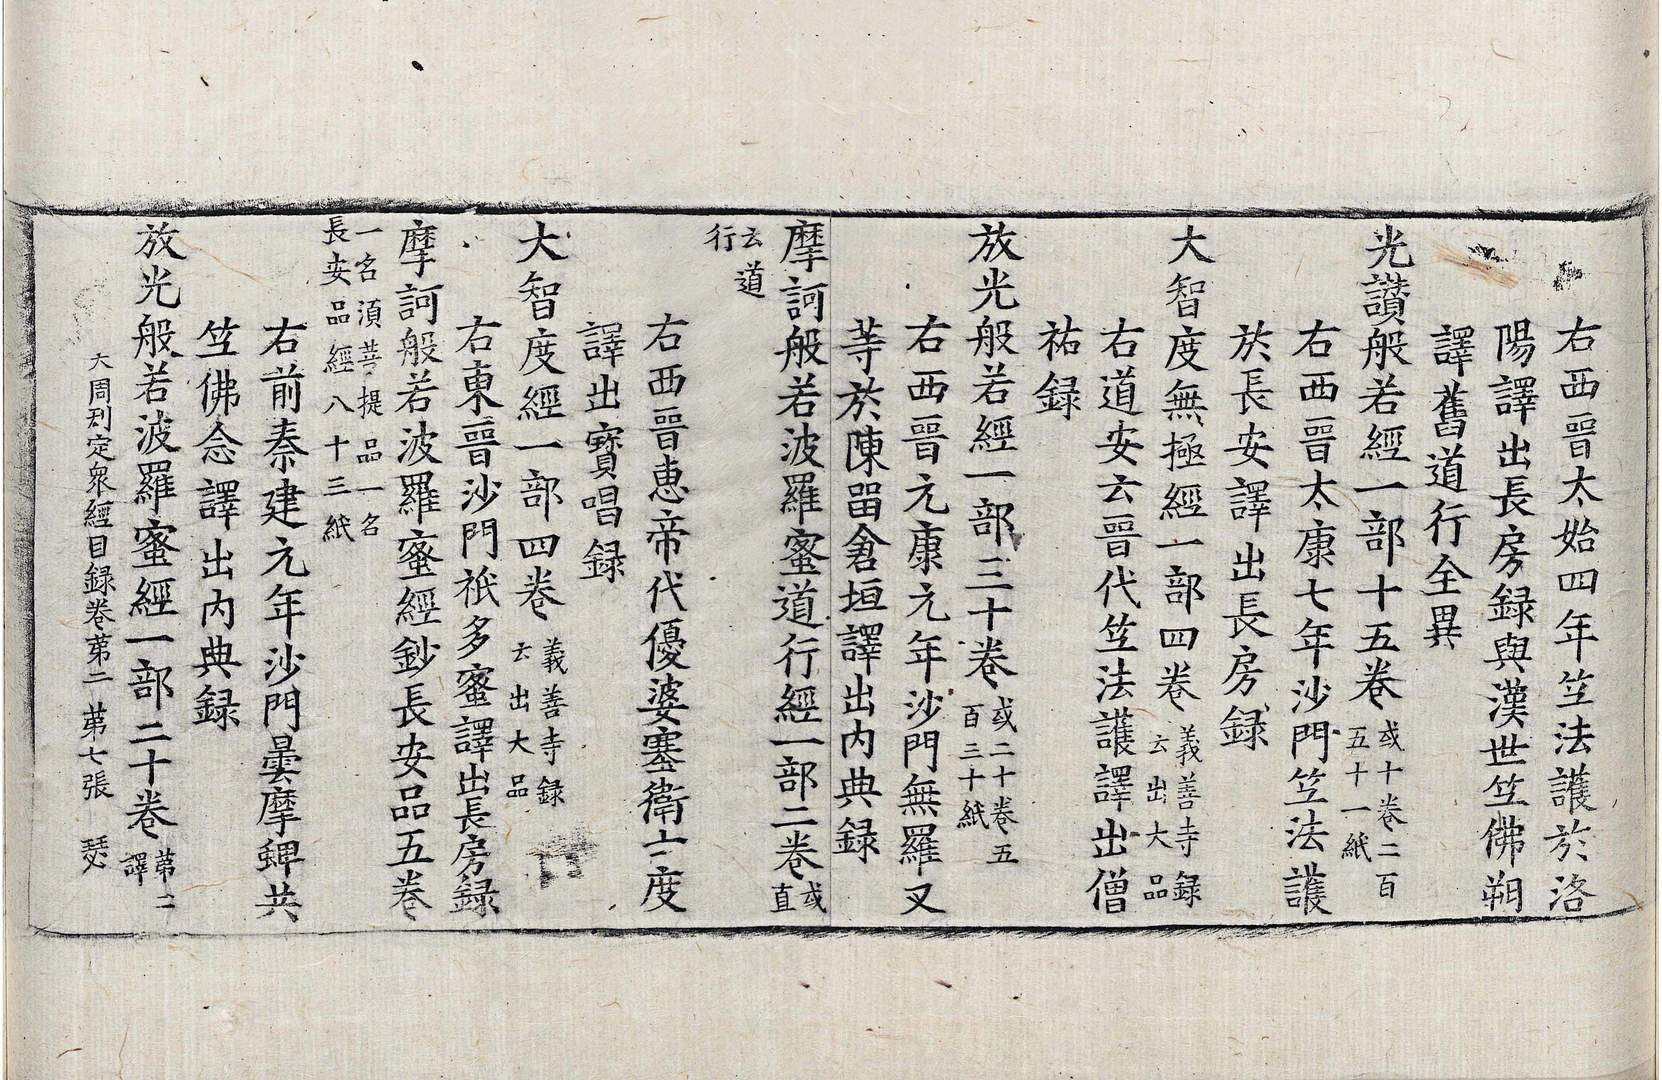 右西晉太始四年竺法護於洛
陽譯出長房録與漢世竺佛朔
譯舊道行全異
光讃般若經一部十五卷
或十卷二百
五十一紙
右西晉太康七年沙門竺法護
於長安譯出長房録
大智度無極經一部四卷
義善寺録
云出大品
右道安云晉代竺法護譯出僧
祐録
放光般若經一部三十卷
或二十卷五
百三十紙
右西晉元康元年沙門無羅叉
等於陳留倉垣譯出内典録
摩訶般若波羅蜜道行經一部二卷
或
直
云道
行
右西晉惠帝代優婆塞衛士度
譯出寳唱録
大智度經一部四卷
義善寺録
云出大品
右東晉沙門祇多蜜譯出長房録
摩訶般若波羅蜜經鈔長安品五卷
一名湏菩提品一名
長安品經八十三紙
右前秦建元年沙門曇摩蜱共
竺佛念譯出内典録
放光般若波羅蜜經一部二十卷
苐二
譯
大周刋定衆經目録卷苐二 苐七張 瑟